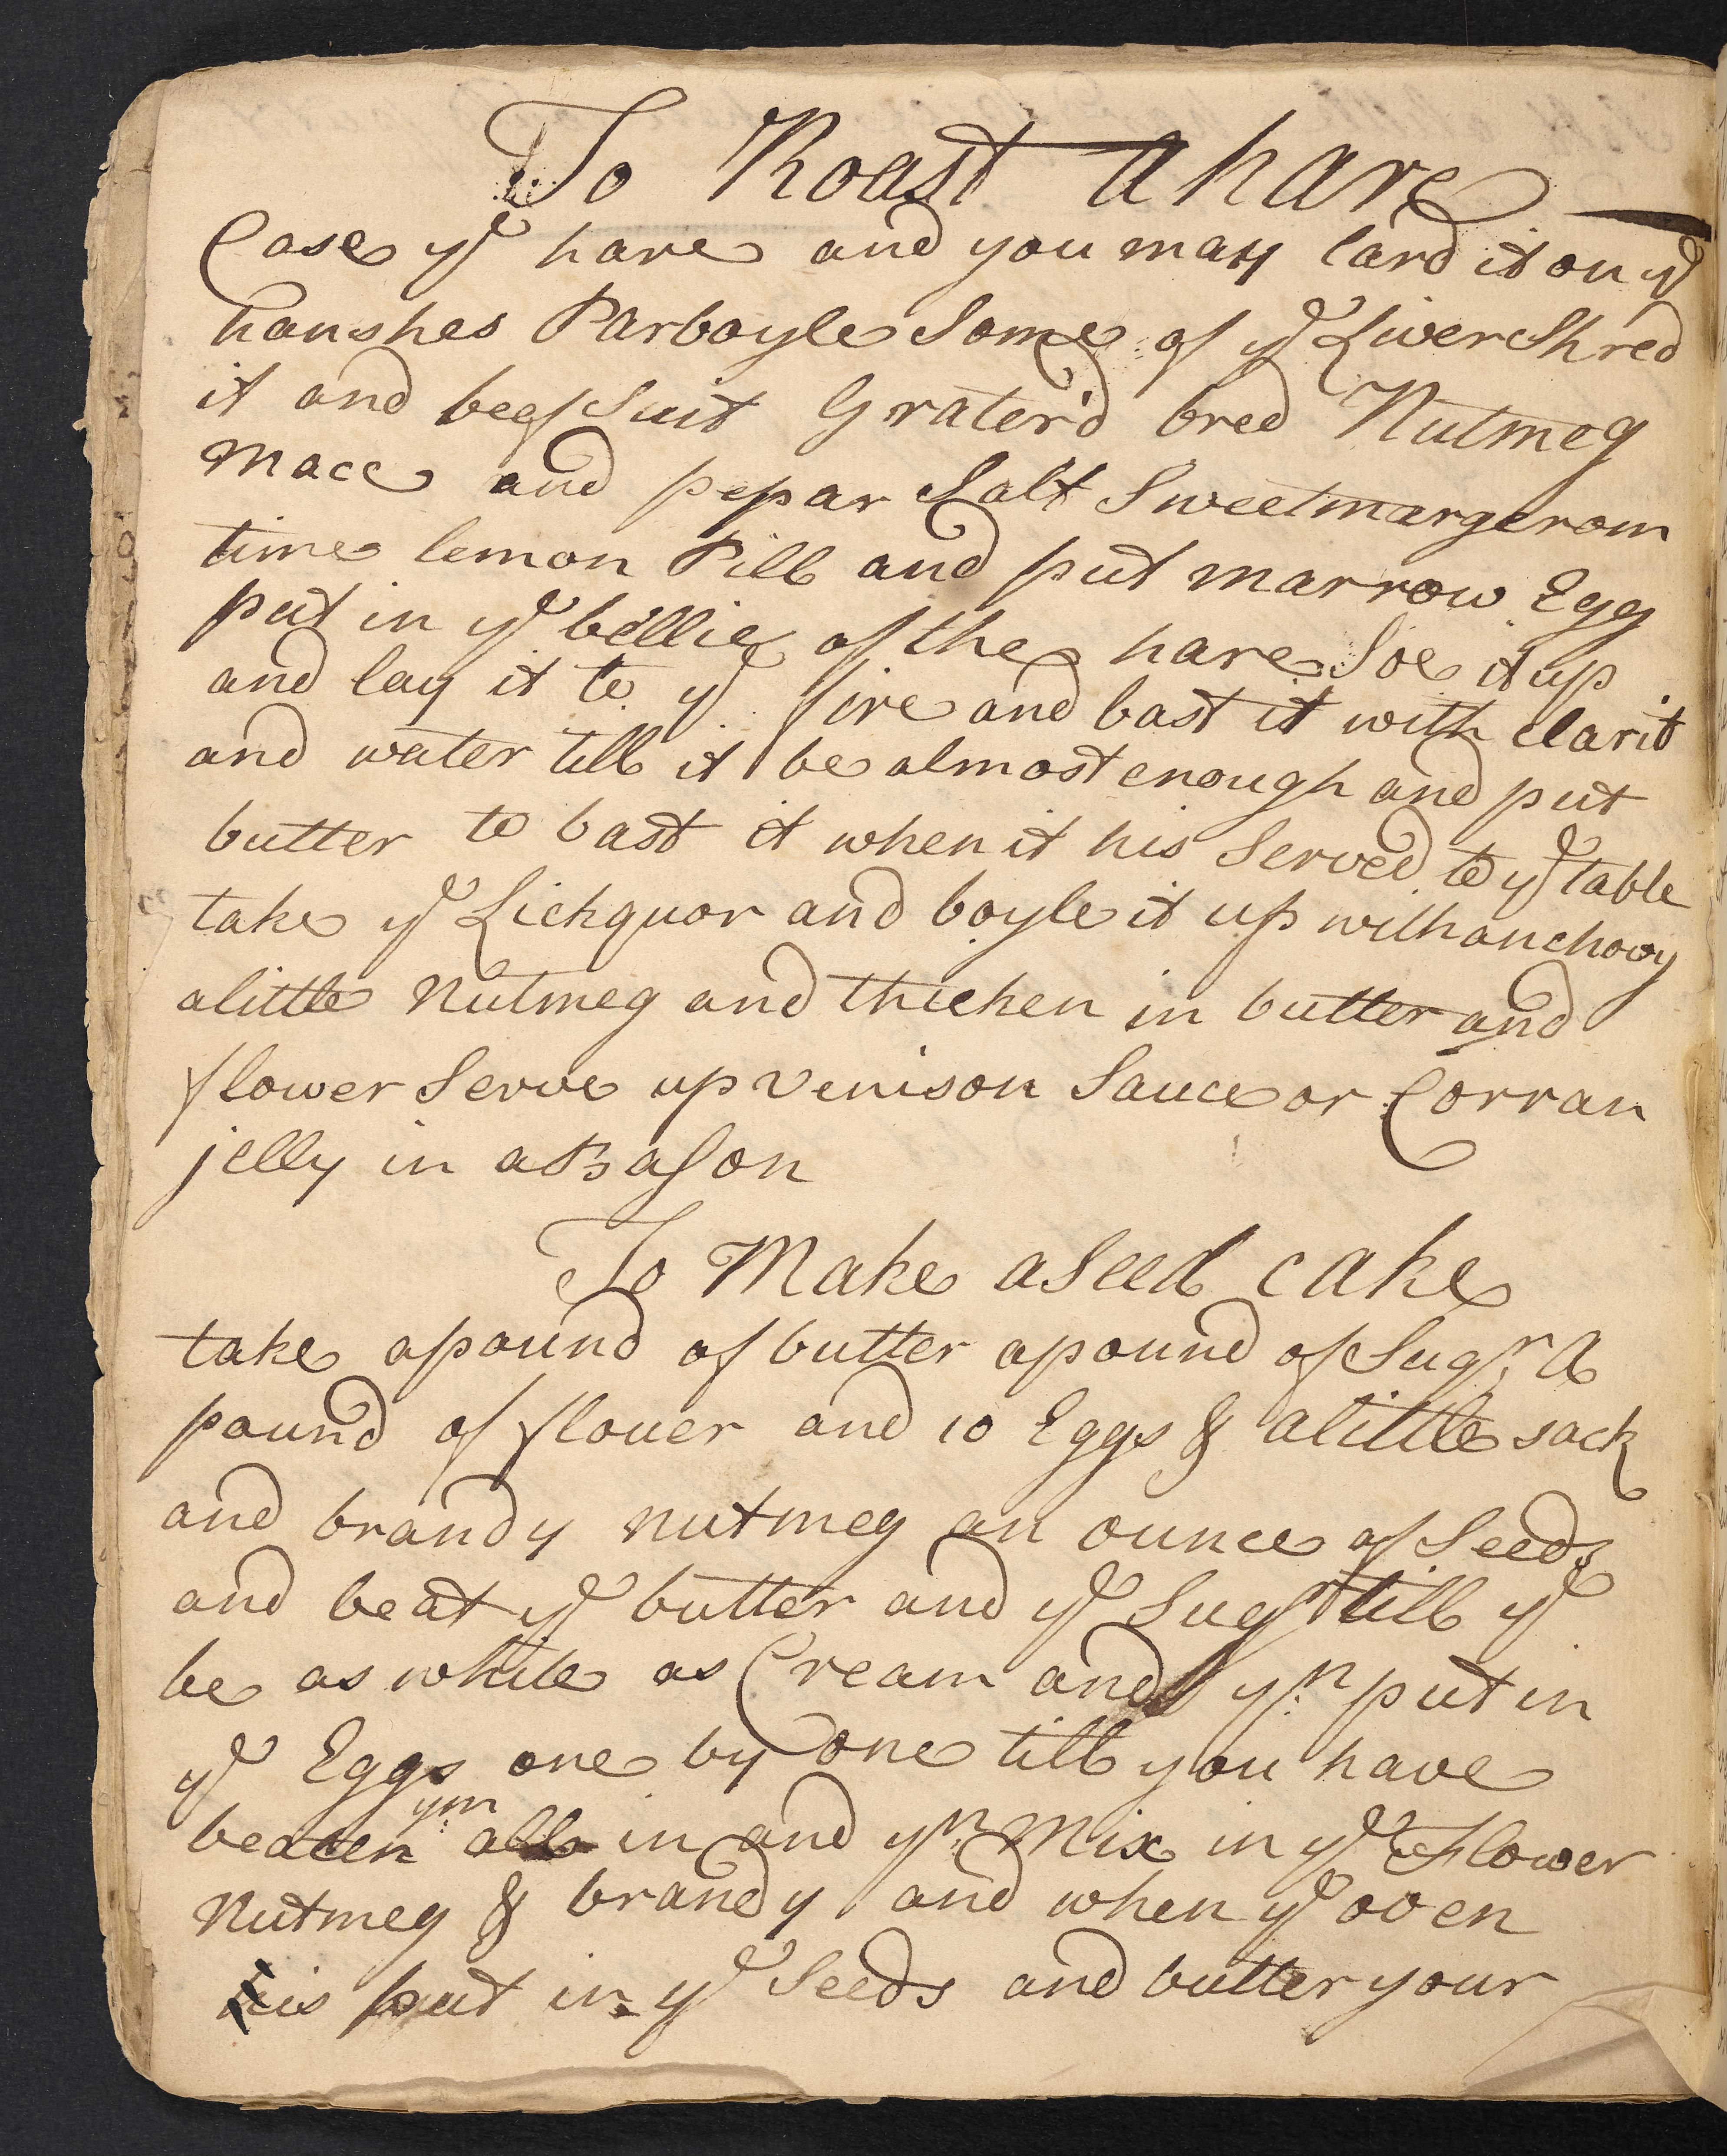 To Roast a hare
Case ye hare and you may lard it on ye
hanshes Parboyle Some of ye Liver Shred
it and beef Suit Grater'd bred Nutmeg
Mace and pepar Salt Sweetmargerom
time lemon Pill and put marrow Egg
put in ye bellie of the hare Soe it up
and lay it to ye fire and bast it with clarit
and water till it be almost enough and put
butter to bast it when it his Served to ye table
take ye Lickquor and boyle it up with anchovy
a little Nutmeg and thicken in butter and
flower Serve up venison Sauce or Corran
jelly in a Bason
To Make a Seed cake
take a pound of butter a pound of Sugr. A
pound of flouer and 10 Eggs & a little sack
and brandy nutmeg an ounce of Seeds
and beat ye butter and ye Sugr till ye
be as white as Cream and yn. put in
ye Eggs one by one till you have
beaten ym all in and yn. Mix in ye Flower
Nutmeg & brandy and when ye oven
is put in ye Seeds and butter your